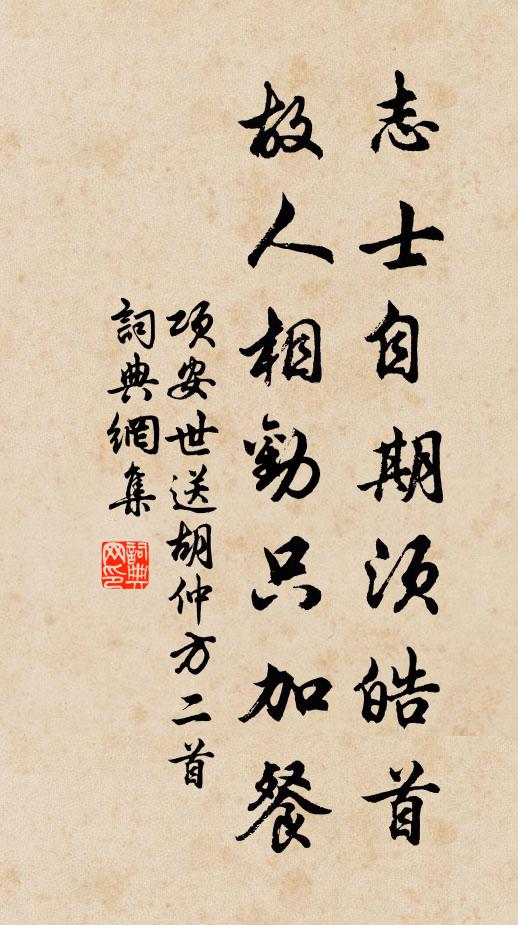 志士自期須皓首
故人相勸只加餐
項安世送胡仲方二首
詞典網集
詞典網印